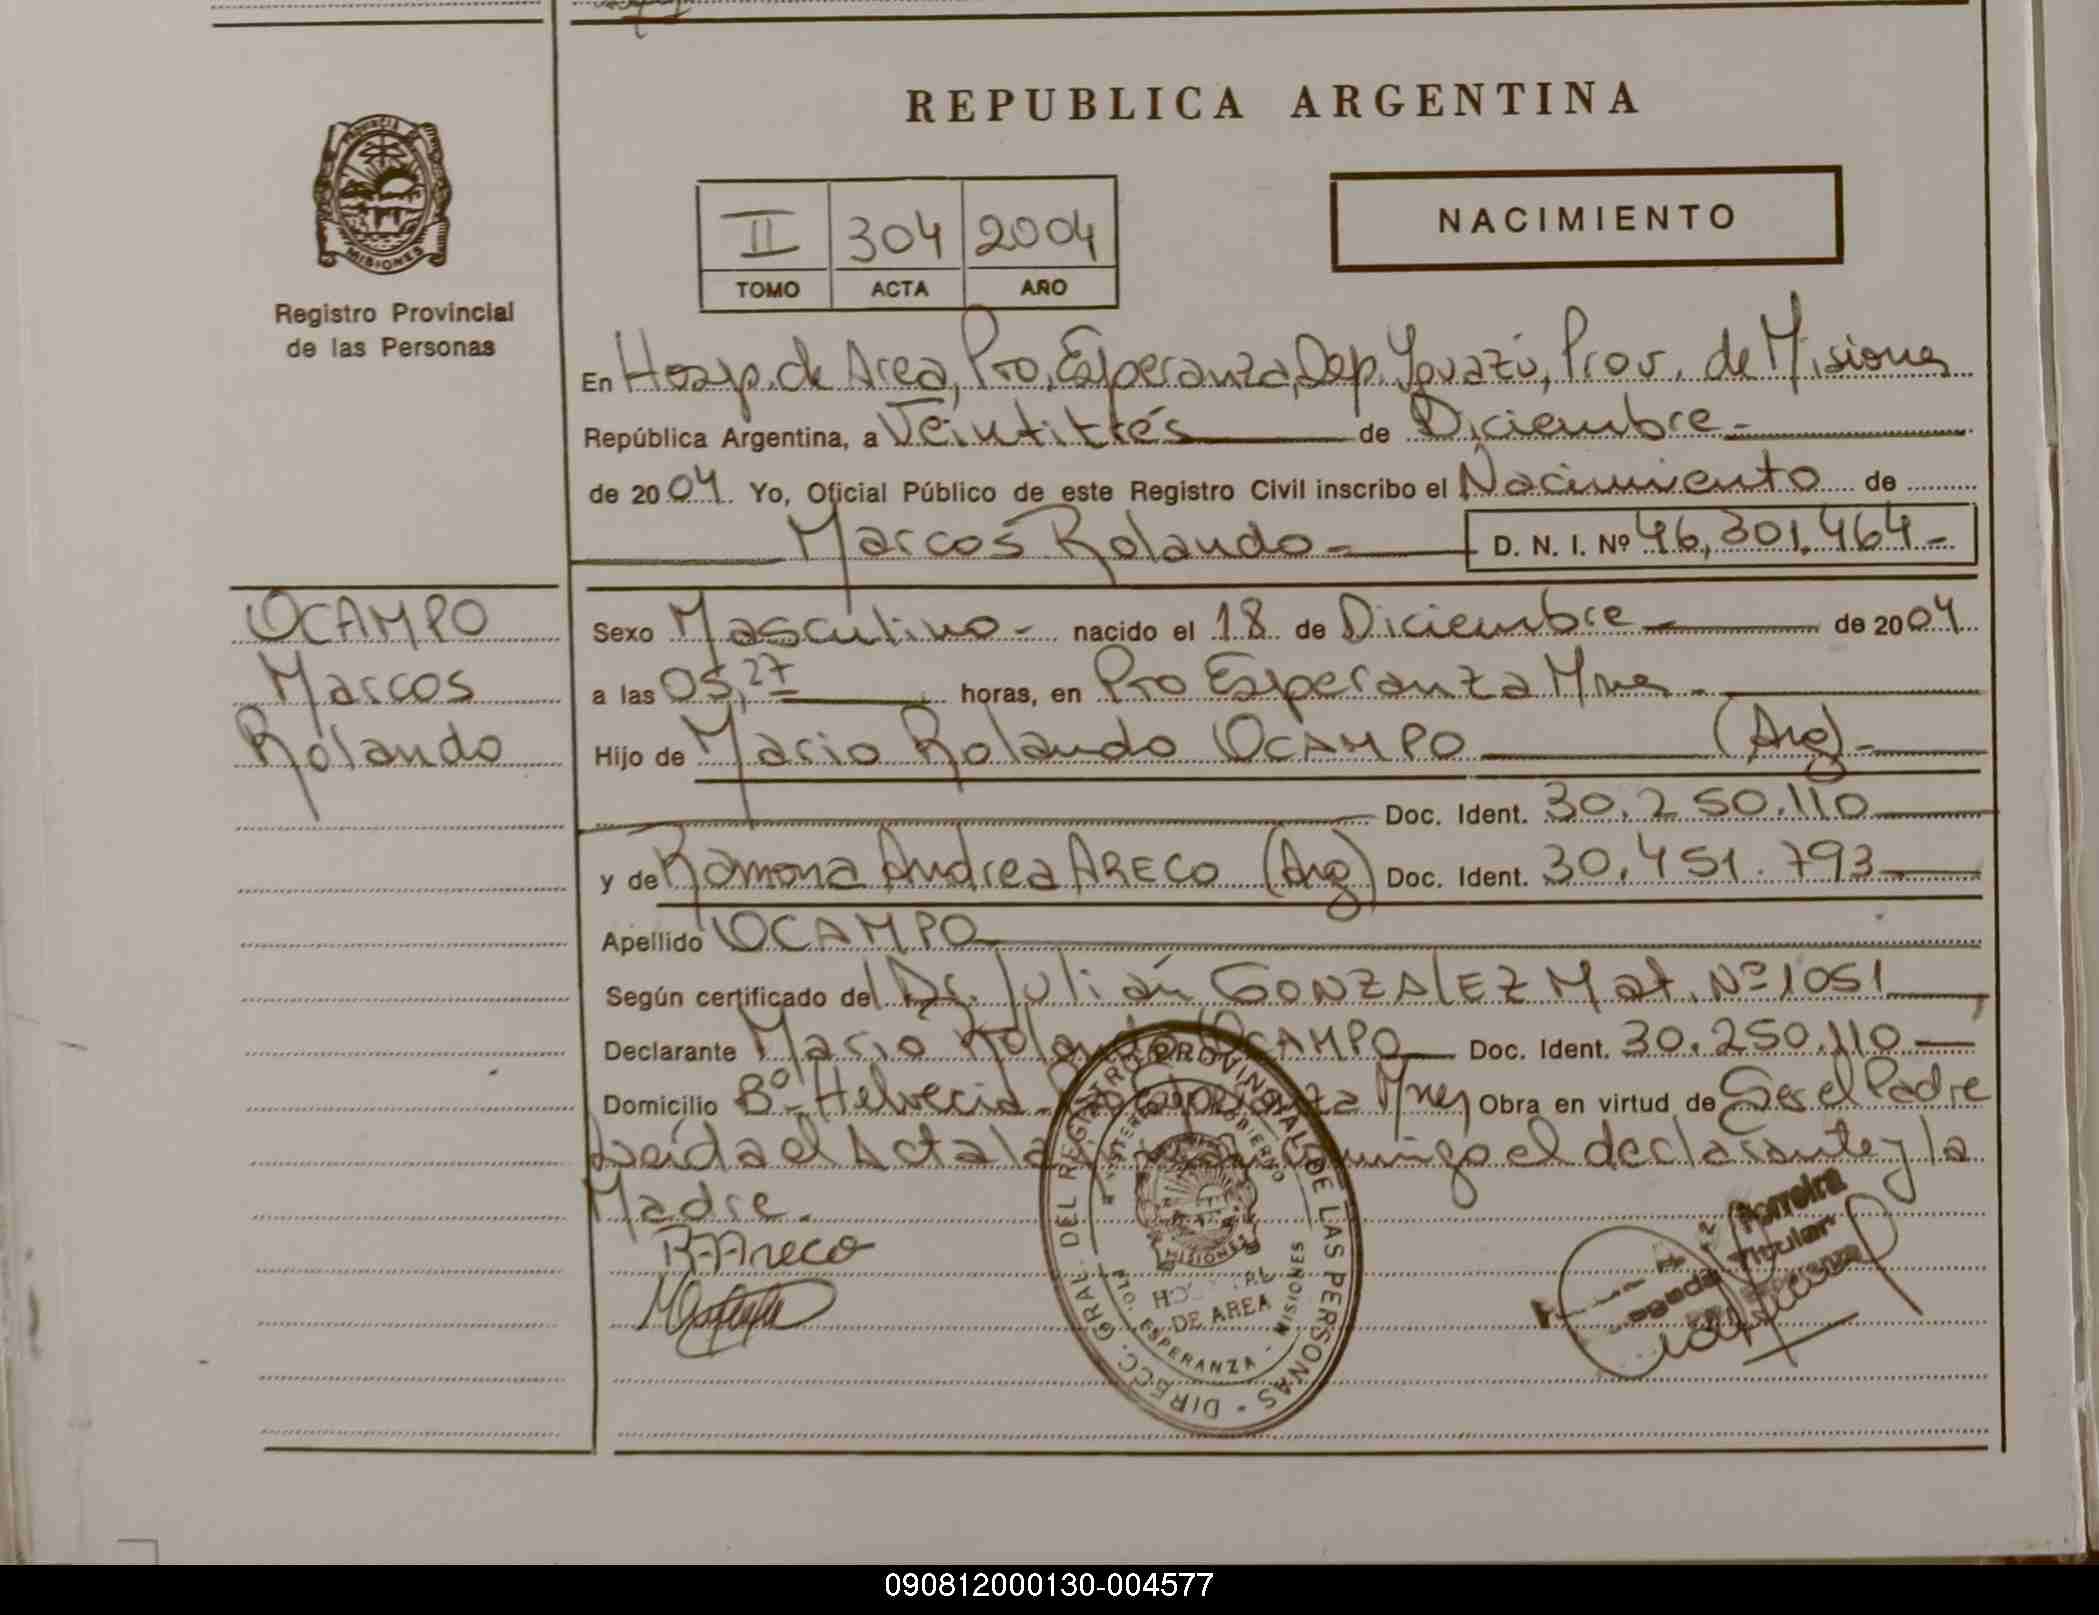 REPUBLICA ARGENTINA
PROVINCIA DE
MISIONES
Registro Provincial
de las Personas
II 304 2004
TOMO ACTA AÑO
NACIMIENTO
En Hosp. de Area, Pto, Esperanza, Dep. Iguazú, Prov. de Misiones
República Argentina, a Veintitrés de Diciembre -
de 2004. Yo, Oficial Público de este Registro Civil inscribo el Nacimiento de
Marcos Rolando - D. N. I. Nº 46,301.464 -
OCAMPO
Marcos
Rolando
Sexo Masculino - nacido el 18 de Diciembre - de 2004
a las 05,27 horas, en Pto Esperanza Mnes -
Hijo de Mario Rolando OCAMPO (Arg) -
Doc. Ident. 30.250.110
y de Ramona Andrea ARECO (Arg) Doc. Ident. 30.451.793
Apellido OCAMPO
Según certificado del Dr. Julián GONZALEZ Mat. Nº 1051
Declarante Mario Rolando OCAMPO Doc. Ident. 30.250.110
Domicilio Bº Helvecia Pto Esperanza Mnes Obra en virtud de Ser el Padre
Leída el Acta la conmigo el declarante y la
Madre.
R. Areco
DIRECC. GRAL. DEL REGISTRO PROVINCIAL DE LAS PERSONAS
GOBIERNO
MISIONES
HOSPITAL
DE AREA
PTO. ESPERANZA - MISIONES
Ferreira
Titular
090812000130-004577